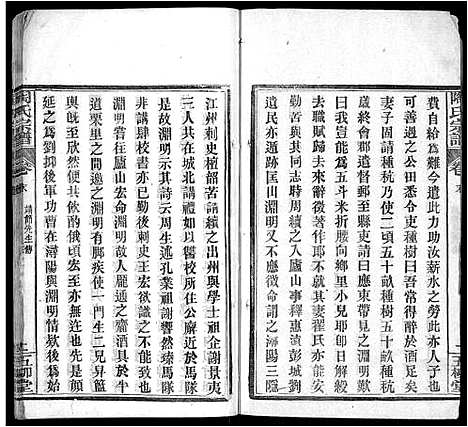 陶氏宗譜
費自給為難今遣此力助汝薪水之勞此亦人子也
可善遇之公田悉令吏種秫曰吾常得醉於酒足矣
妻子固請種秔乃使二頃五十畝種秫五十畝種秔
歲終會郡遣督郵至縣吏請曰應束帶見之淵明歎
曰我豈能為五斗米折腰向鄉里小兒耶即日解綬
去職賦歸去來辭徵著作郎不就其妻翟氏亦能安
勤苦與其同志時周續之入廬山事釋慧遠彭城劉
遺民亦遁跡匡山淵明又不應徵命謂之潯陽三隱
江州刺史檀韶苦請續之出州與學士祖企謝景夷
三人共在城北講禮加以讐校所住公廨近於馬隊
故淵明示其詩云周生述孔業祖謝響然臻馬隊
非講肆校書亦已勤刺史王宏欲識之不能致也
淵明嘗往廬山宏命淵明故人龐通之齎酒具于半
道栗里之間邀之淵明有脚疾使一門生二兒舁籃
輿既至欣然便共飲酌俄頃宏至亦無迕也先是顏
延之為劉抑後軍功曹在潯陽與淵明情欵後為始
陶氏宗譜
靖節先生傳
五柳堂